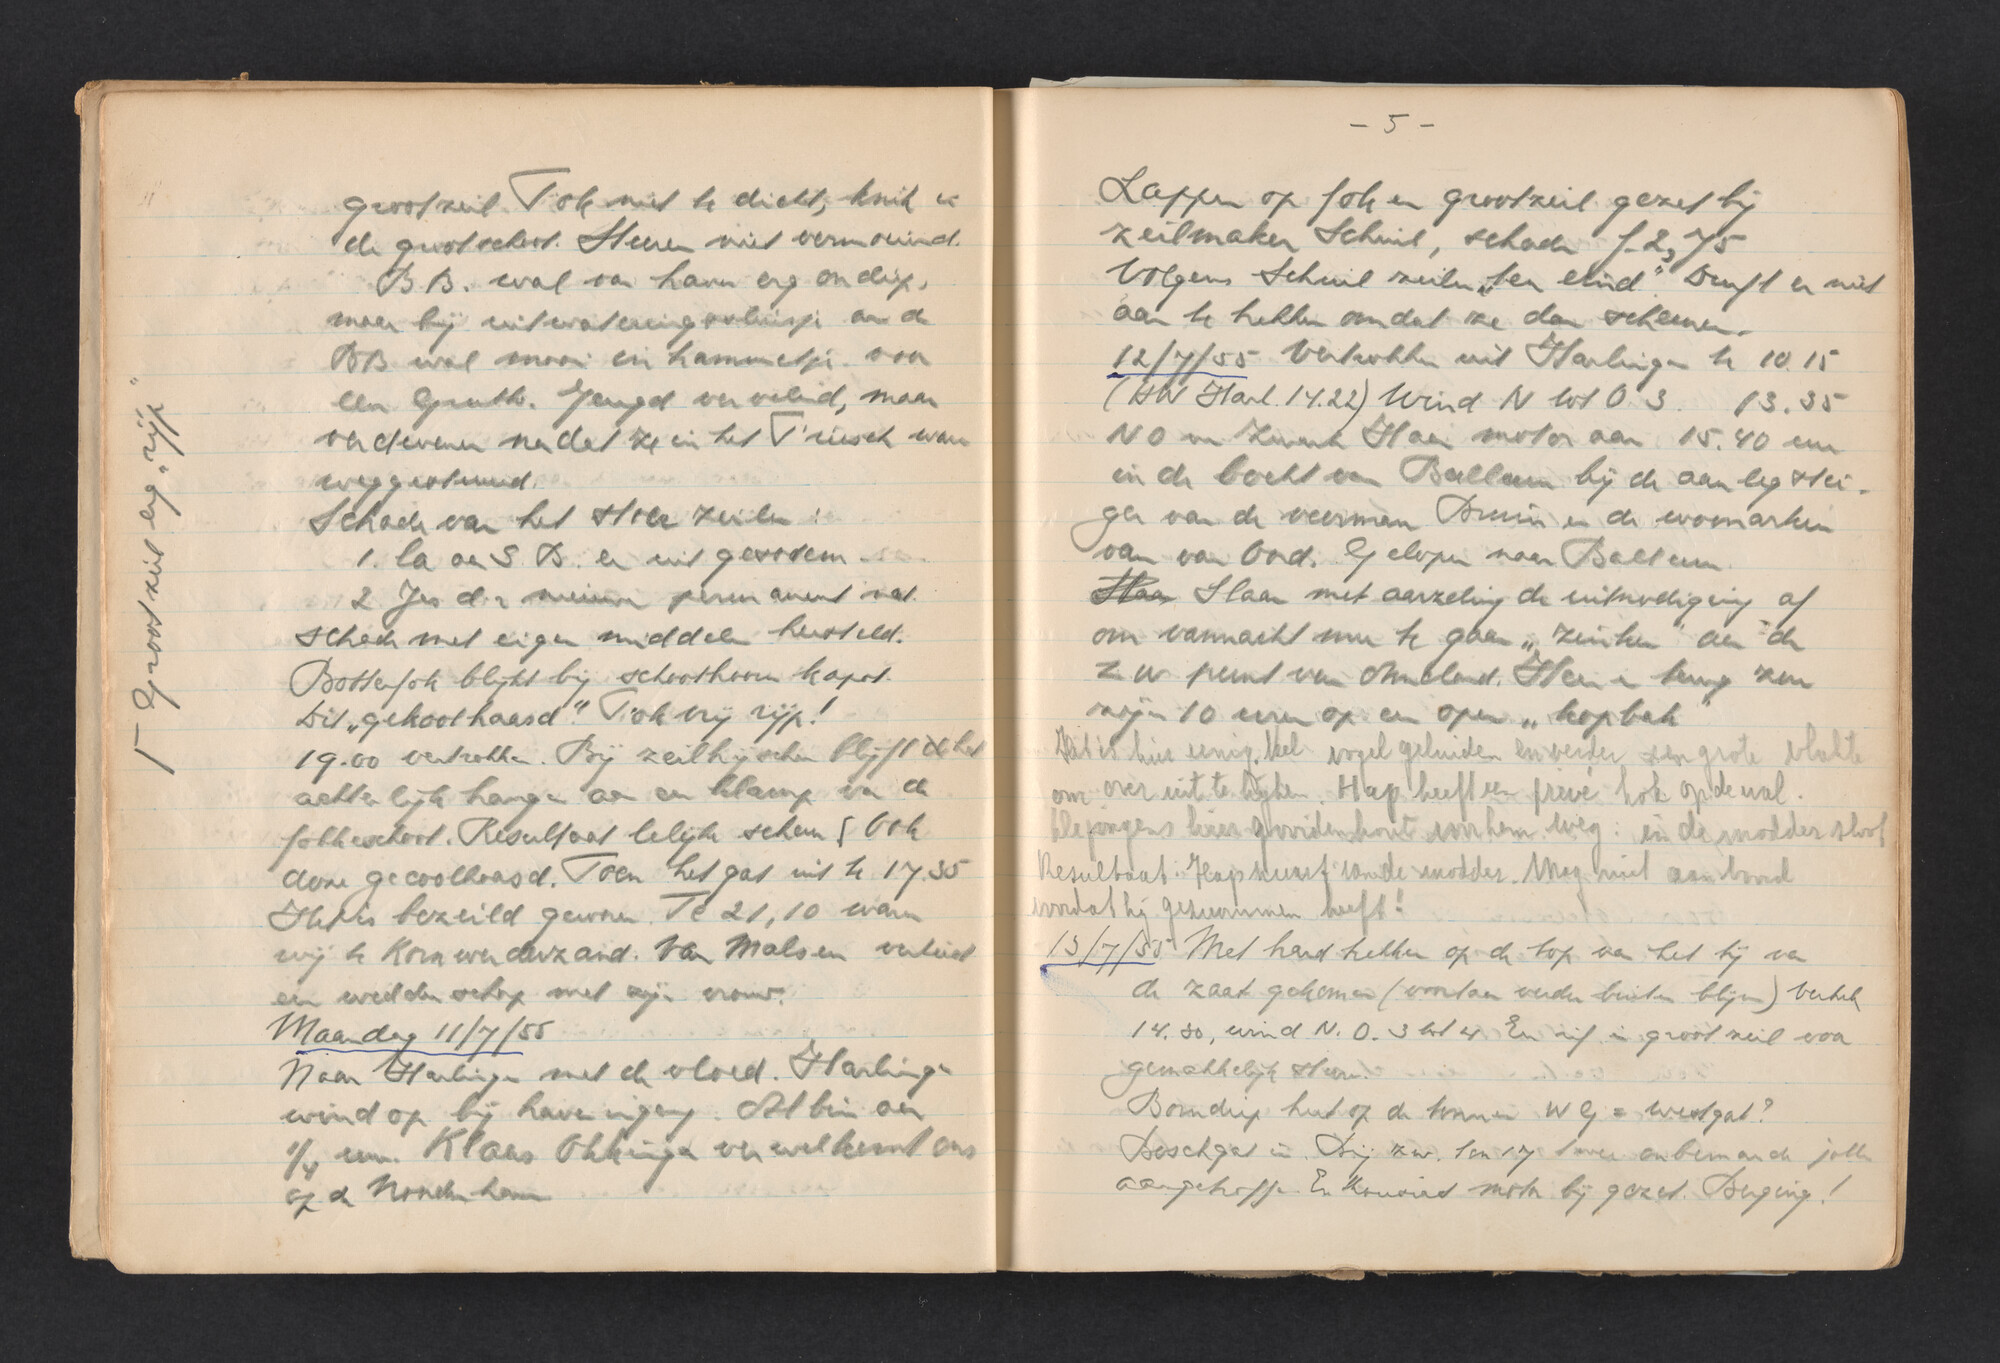 grootzeil. Fok niet te dicht, knik in
de grootschoot. Sturen niet vermoeiend.
BB. wal van haven erg ondiep,
maar bij uitwateringssluisje aan de
BB wal mooi in kammetje voor
een Gruth. Jeugd vervelend, maar
verdwenen nadat ze in het Friesch waren
weggestuurd.
Schade van het stoer zeilen:
1. la aan S.B. er uit
2 Jas d. nieuwe permanent nat.
schade met eigen middelen hersteld.
Bottenfok blijkt bij schoothoorn kapot.
Dit „gekoolhaasd". Fok vrij rijp!
19.00 vertrokken. Bij zeilhijschen blijft de
achterlijk hangen aan een klamp van de
fokkeschoot. Resultaat lelijke scheur { Ook
deze gecoolhaasd. Toen het gat uit te 17.35
Het is bezeild geworden. Te 21,10 waren
wij te Kornwerderzand. Van Malsen verliest
een weddenschap met zijn vrouw.
Maandag 11/7/55
Naar Harlingen met de vloed. Harlingen
wind op bij haveningang. Albin aan
1/4 uur. Klaas Okkinga verwelkomt ons
op de Noorderhaven
Γ Grootzeil erg „rijp"
- 5 -
Lappen op fok en grootzeil gezet bij
zeilmaker Schuil, schade f 2,75
Volgens Schuil zeilen „ten eind" Durft er niet
aan te hechten omdat ze dan scheuren.
12/7/55 Vertrokken uit Harlingen te 10.15
(HW Harl. 14.22) Wind N tot O 3. 13.35
NO en Zwart Haan motor aan 15.40 uur
in de bocht van Ballum bij de aanlegstei-
ger van de veerman Bruin en de woonarken
van van Oord. Gelopen naar Ballum.
Slaan met aarzeling de uitnodiging af
om vannacht mee te gaan „zinken" aan de
ZW punt van Ameland. Heen en terug zou
zijn 10 uren op een open „kopbak"
Het is hier enig. Veel vogelgeluiden en verder een grote vlakte
om over uit te kijken. Hap heeft een privé hok op de wal.
De jongens liepen voor hem weg: in de moddersloot
Resultaat: Hap zwart van de modder. Mag niet aan boord
voordat hij gezwommen heeft!
13/7/55 Met hard trekken op de top van het tij van
de zaat gekomen (voortaan verder buiten blijven) Vertrek
14.30, wind N.O. 3 tot 4 En rif in grootzeil voor
gemakkelijk sturen.
Borndiep heet op de tonnen WG = westgat?
Boschgat in. Bij zw. ton 17 onbemande jolle
aangetroffen. En motor bij gezet. Berging!